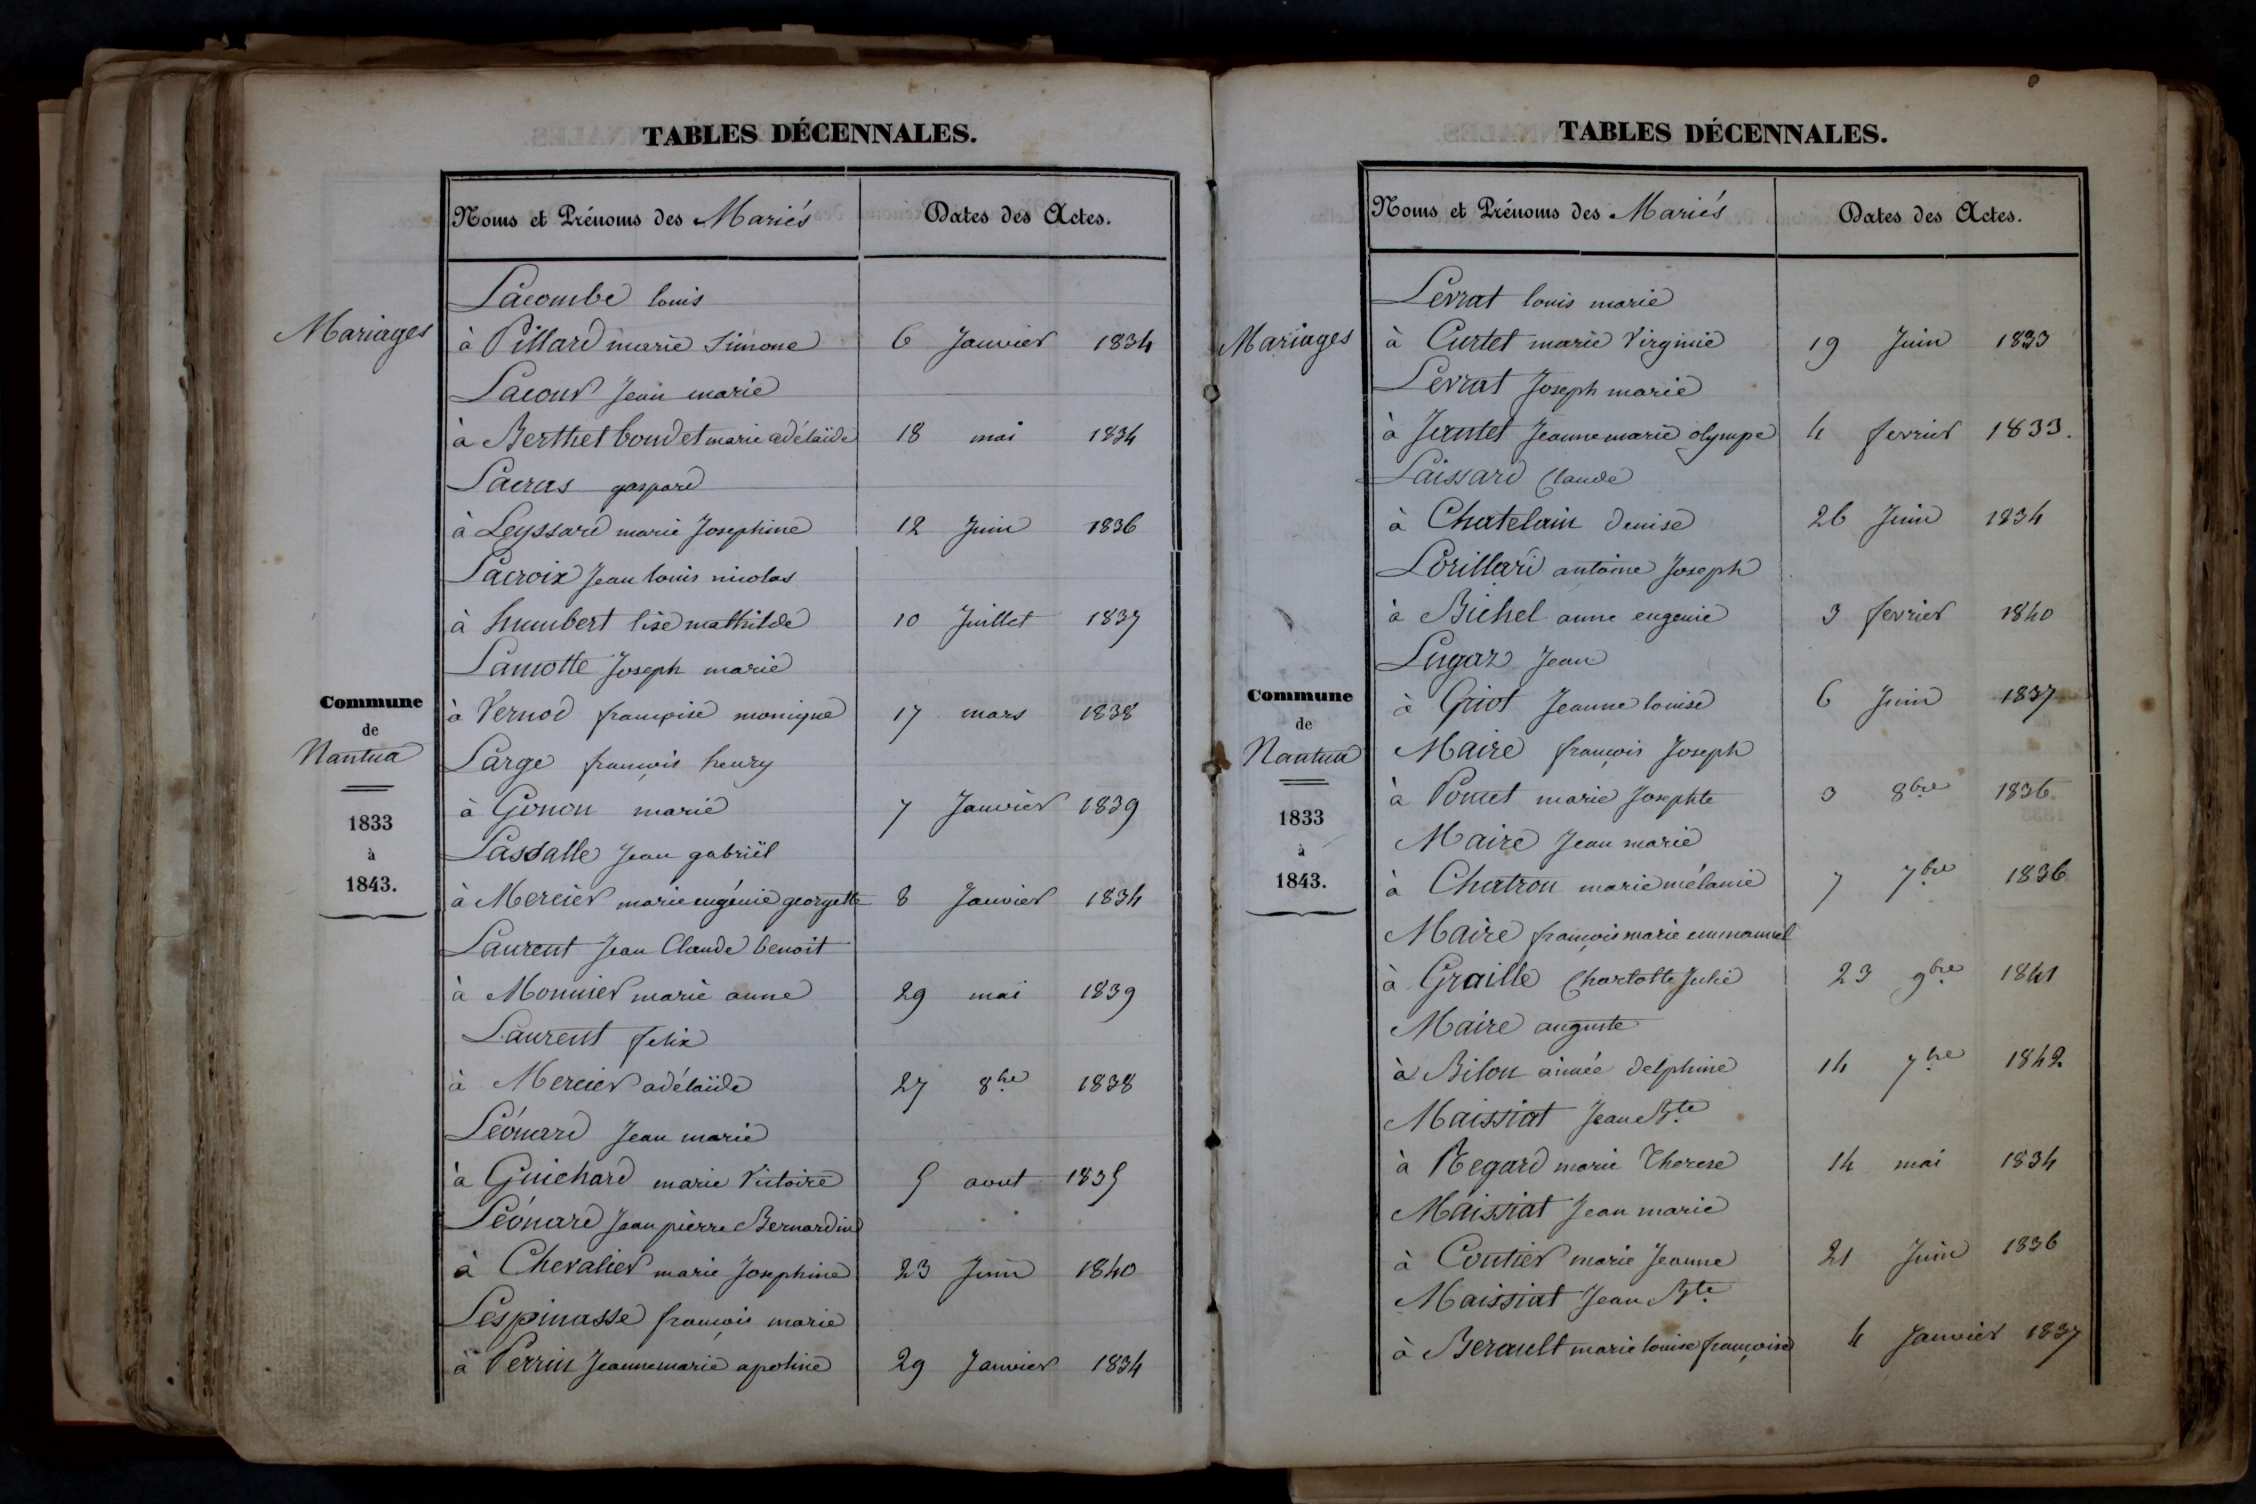 TABLES DÉCENNALES.
Noms et Prénoms des Mariés
Dates des Actes.
Mariages
Commune
de
Nantua
1833
à
1843.
Lacombe louis
à Pillard marie Simone 6 Janvier 1834
Lacour Jean marie
à Berthet bondet marie adélaïde 18 mai 1834
Lacras gaspard
à Leyssard marie Josephine 12 Juin 1836
Lacroix Jean louis nicolas
à humbert lise mathilde 10 Juillet 1837
Lamotte Joseph marie
à Vernod françoise monique 17 mars 1838
Large françois henry
à Gonon marie 7 Janvier 1839
Lassalle Jean gabriël
à Mercier marie eugénie georgette 8 Janvier 1834
Laurent Jean Claude benoit
à Monnier marie anne 29 mai 1839
Laurent felix
à Mercier adélaïde 27 8bre 1838
Léonard Jean marie
à Guichard marie Victoire 5 aout 1835
Léonard Jean pierre Bernardin
à Chevalier marie Josephine 23 Juin 1840
Lespinasse françois marie
à Perrin Jeanne marie apoline 29 Janvier 1834
TABLES DÉCENNALES.
Noms et Prénoms des Mariés
Dates des Actes.
Mariages
Commune
de
Nantua
1833
à
1843.
Levrat louis marie
à Curtet marie Virginie 19 Juin 1833
Levrat Joseph marie
à Jeantet Jeanne marie olympe 4 fevrier 1833.
Laissard Claude
à Chatelain Denise 26 Juin 1834
Lorillard antoine Joseph
à Bichel anne eugenie 3 fevrier 1840
Lugaz Jean
à Griot Jeanne louise 6 Juin 1837
Maire françois Joseph
à Poncet marie Josephte 3 8bre 1836
Maire Jean marie
à Chatron marie mélanie 7 7bre 1836
Maire françois marie emmanuel
à Graille Charlotte Julie 23 9bre 1841
Maire auguste
à Bilon aimée delphine 14 7bre 1842.
Maissiat Jean Bte
à Regard marie Therese 14 mai 1834
Maissiat Jean marie
à Coutier marie Jeanne 21 Juin 1836
Maissiat Jean Bte
à Berault marie louise françoise 4 Janvier 1837